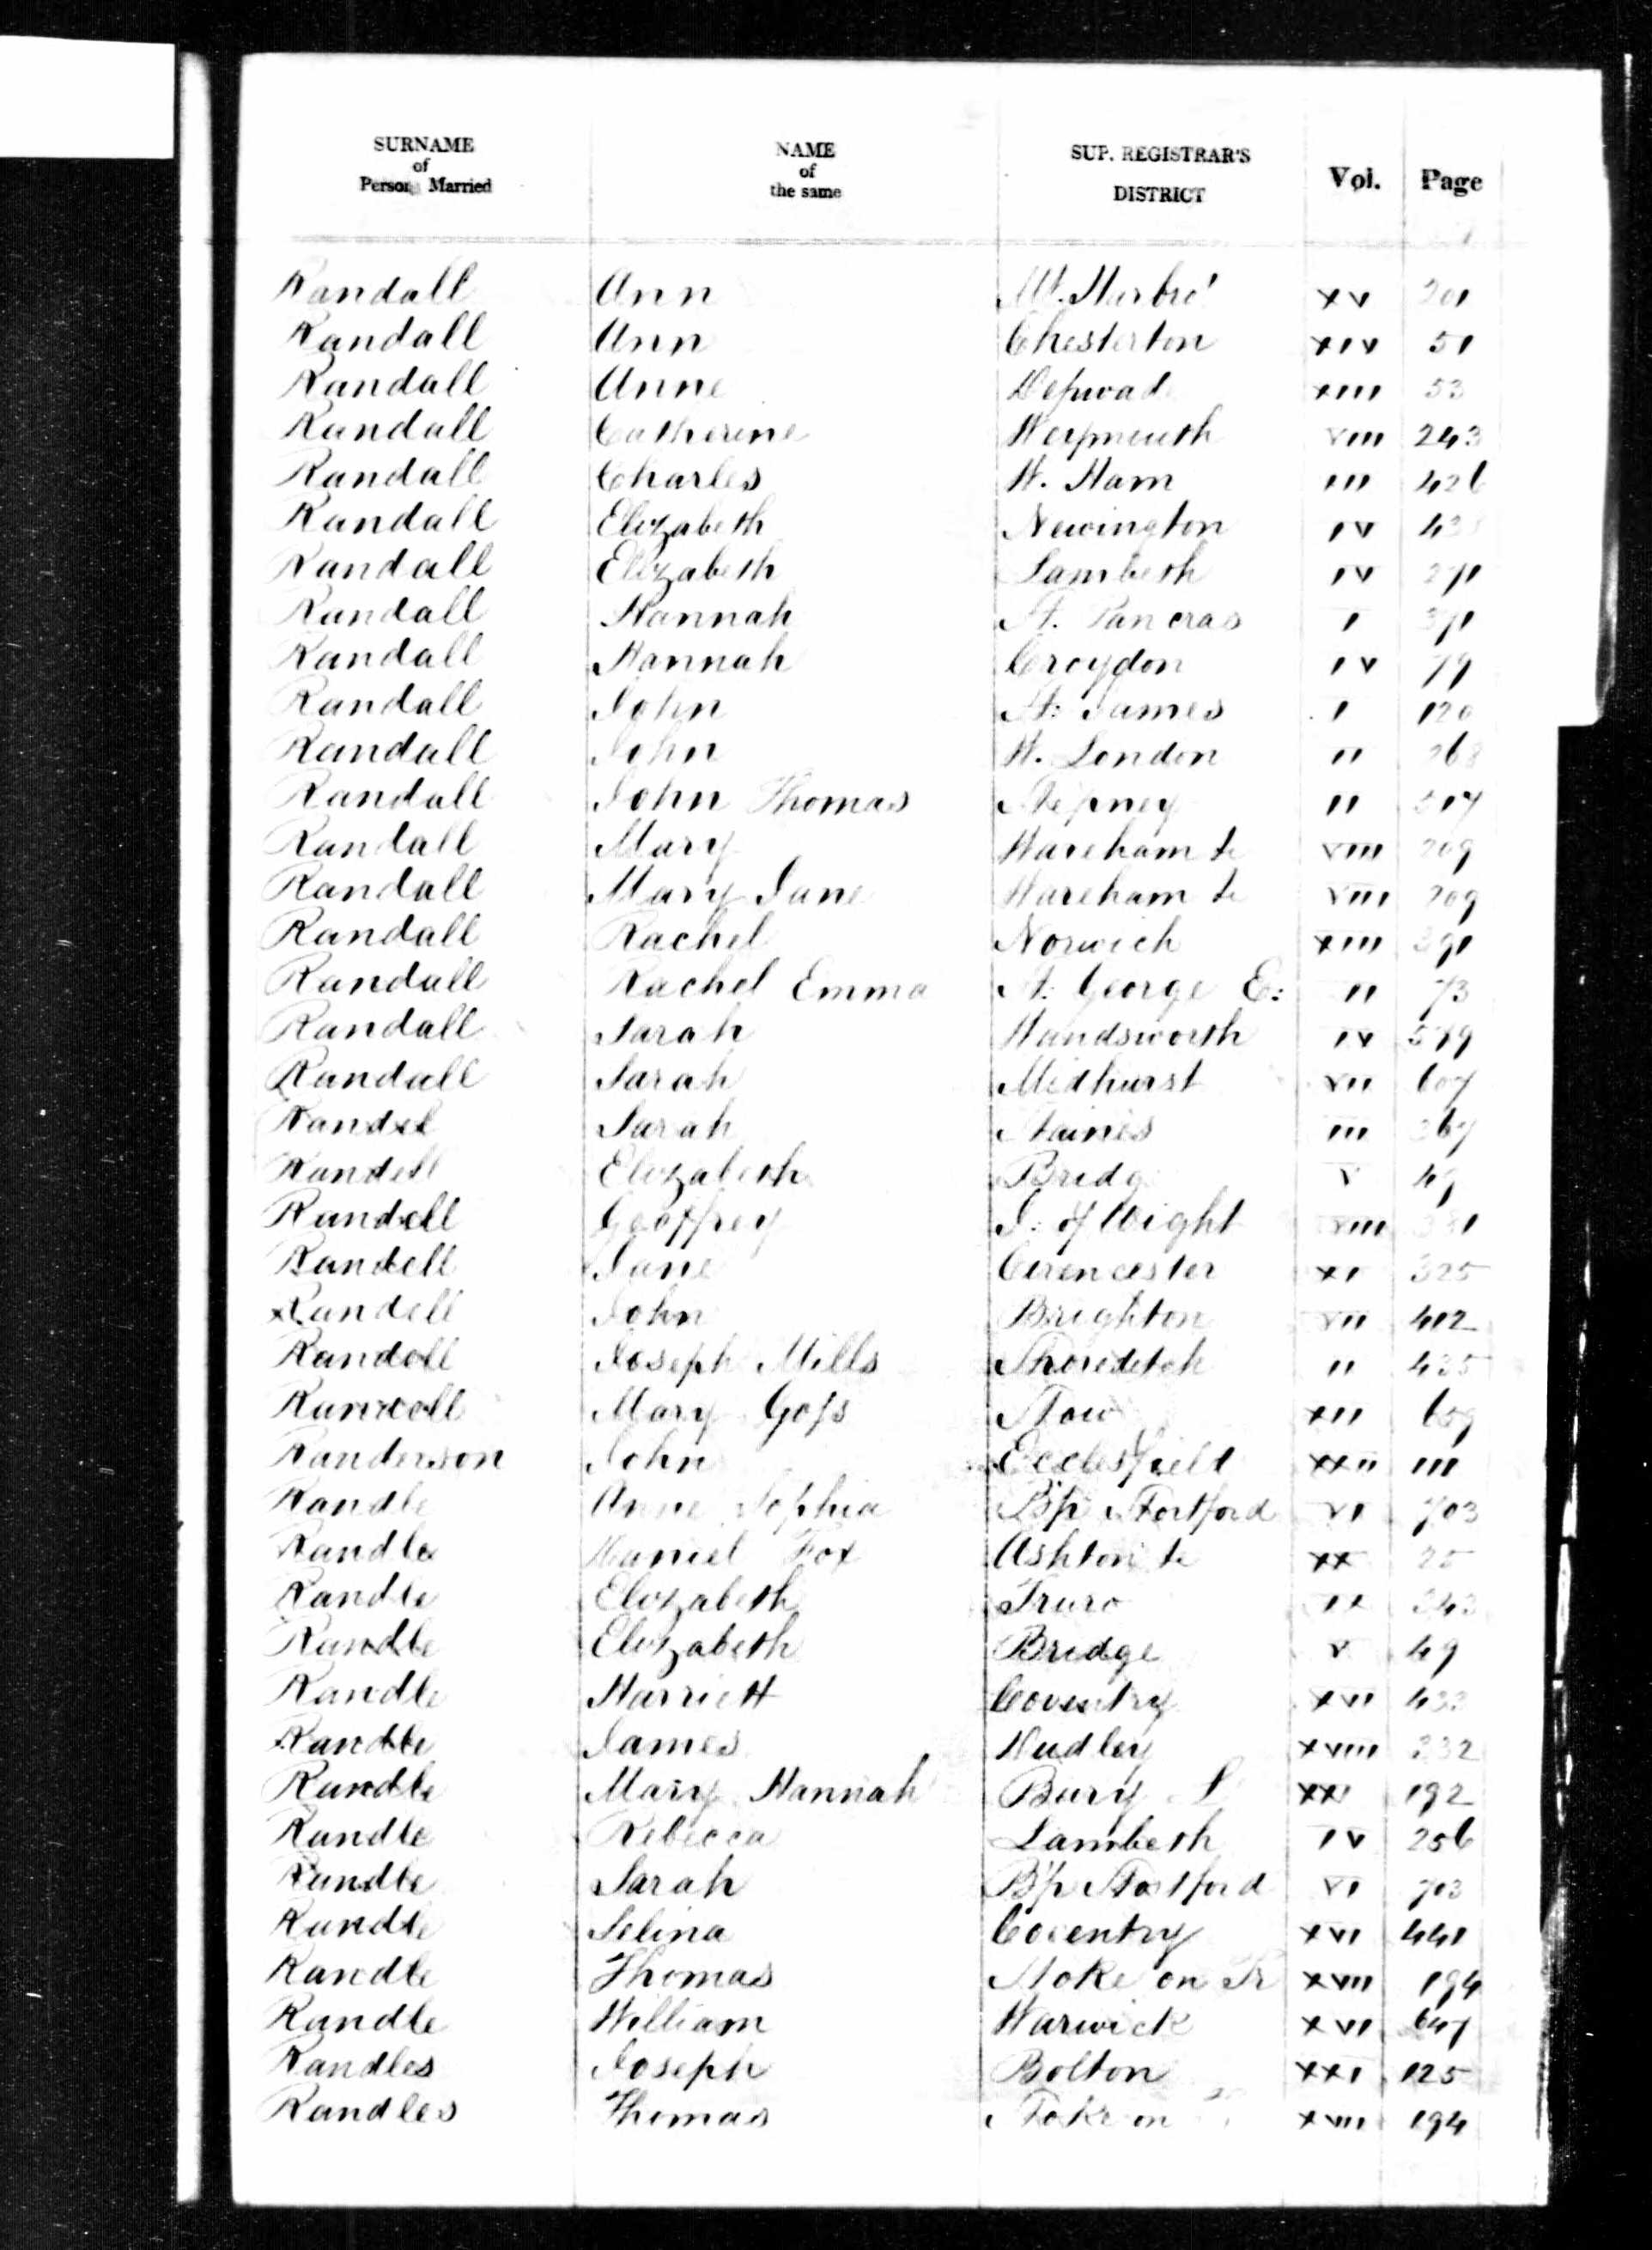 SURNAME of Persons Married NAME of the same SUP. REGISTRAR'S DISTRICT Vol. Page
Randall Ann Mt. Harbro' xv 201
Randall Ann Chesterton xiv 51
Randall Anne Depwade xiii 53
Randall Catherine Weymouth viii 243
Randall Charles W. Ham iii 426
Randall Elizabeth Newington iv
Randall Elizabeth Lambeth iv 271
Randall Hannah St. Pancras i 371
Randall Hannah Croydon iv 79
Randall John St: James i 120
Randall John W. London ii 268
Randall John Thomas Stepney ii 517
Randall Mary Wareham &c viii 209
Randall Mary Jane Wareham &c viii 209
Randall Rachel Norwich xiii 391
Randall Rachel Emma St: George E: ii 73
Randall Sarah Wandsworth iv 579
Randall Sarah Midhurst vii 607
Randel Sarah Staines iii 367
Randell Elizabeth Bridge v 49
Randell Geoffrey I: of Wight viii
Randell Jane Cirencester xi 325
Randell John Brighton vii 412
Randoll Joseph Mills Shoreditch ii 435
Mary Goss Stow xii 659
Randerson John Ecclesfield xxii 111
Randle Anne Sophia B'p Stortford vi 703
Randle Daniel Fox Ashton &c xx 25
Randle Elizabeth Truro ix 343
Randle Elizabeth Bridge v 49
Randle Harriett Coventry xvi 433
Randle James Dudley xviii 332
Randle Mary Hannah Bury L xxi 192
Randle Rebecca Lambeth iv 256
Randle Sarah B'p Stortford vi 703
Randle Selina Coventry xvi 441
Randle Thomas Stoke on Tr xvii 194
Randle William Warwick xvi 647
Randles Joseph Bolton xxi 125
Randles Thomas Stoke on xvii 194